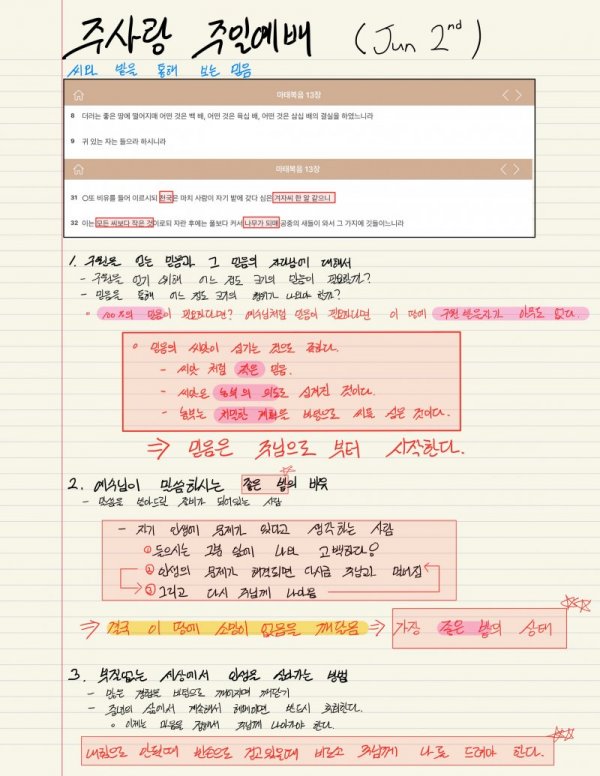 주사랑 주일예배 (Jun 2nd)
씨와 밭을 통해 보는 믿음
마태복음 13장
8 더러는 좋은 땅에 떨어지매 어떤 것은 백 배, 어떤 것은 육십 배, 어떤 것은 삼십 배의 결실을 하였느니라
9 귀 있는 자는 들으라 하시니라
마태복음 13장
31 ○또 비유를 들어 이르시되 천국은 마치 사람이 자기 밭에 갖다 심은 겨자씨 한 알 같으니
32 이는 모든 씨보다 작은 것이로되 자란 후에는 풀보다 커서 나무가 되매 공중의 새들이 와서 그 가지에 깃들이느니라
1. 구원을 얻는 믿음과 그 믿음의 자라남에 대해서
- 구원을 얻기 위해 어느 정도 크기의 믿음이 필요한가?
- 믿음을 통해 어느 정도 크기의 행위가 나와야 한가?
◦ 100%의 믿음이 필요하다면? 예수님처럼 믿음이 필요하다면 이 땅에 구원 받은자가 아무도 없다.
◦ 믿음의 씨앗이 심기는 것으로 족하다.
- 씨앗 처럼 작은 믿음.
- 씨앗은 농부의 의도로 심겨진 것이다.
- 농부는 치밀한 계획을 바탕으로 씨를 심은 것이다.
⇒ 믿음은 주님으로 부터 시작한다.
2. 예수님이 말씀하시는 좋은 밭의 비유
- 말씀을 받아드릴 준비가 되어있는 사람
- 자기 인생에 문제가 있다고 생각하는 사람
① 들으시는 고침 앞에 나와 고백하다
② 인생의 문제가 해결되면 다시금 주님과 멀어짐
③ 그리고 다시 주님께 나아옴
⇒ 결국 이 땅에 소망이 없음을 깨달음 ⇒ 가장 좋은 밭의 상태
3. 부질없는 세상에서 인생을 살아가는 방법
- 많은 경험을 바탕으로 깨어지면 깨닫기
- 중년의 삶에서 계속해서 헤매이면 반드시 후회한다.
◦ 이제는 마음을 정해서 주님께 나아가야 한다.
내힘으로 안될때 빈손으로 걷고있을때 비로소 주님께 나를 드려야 한다.